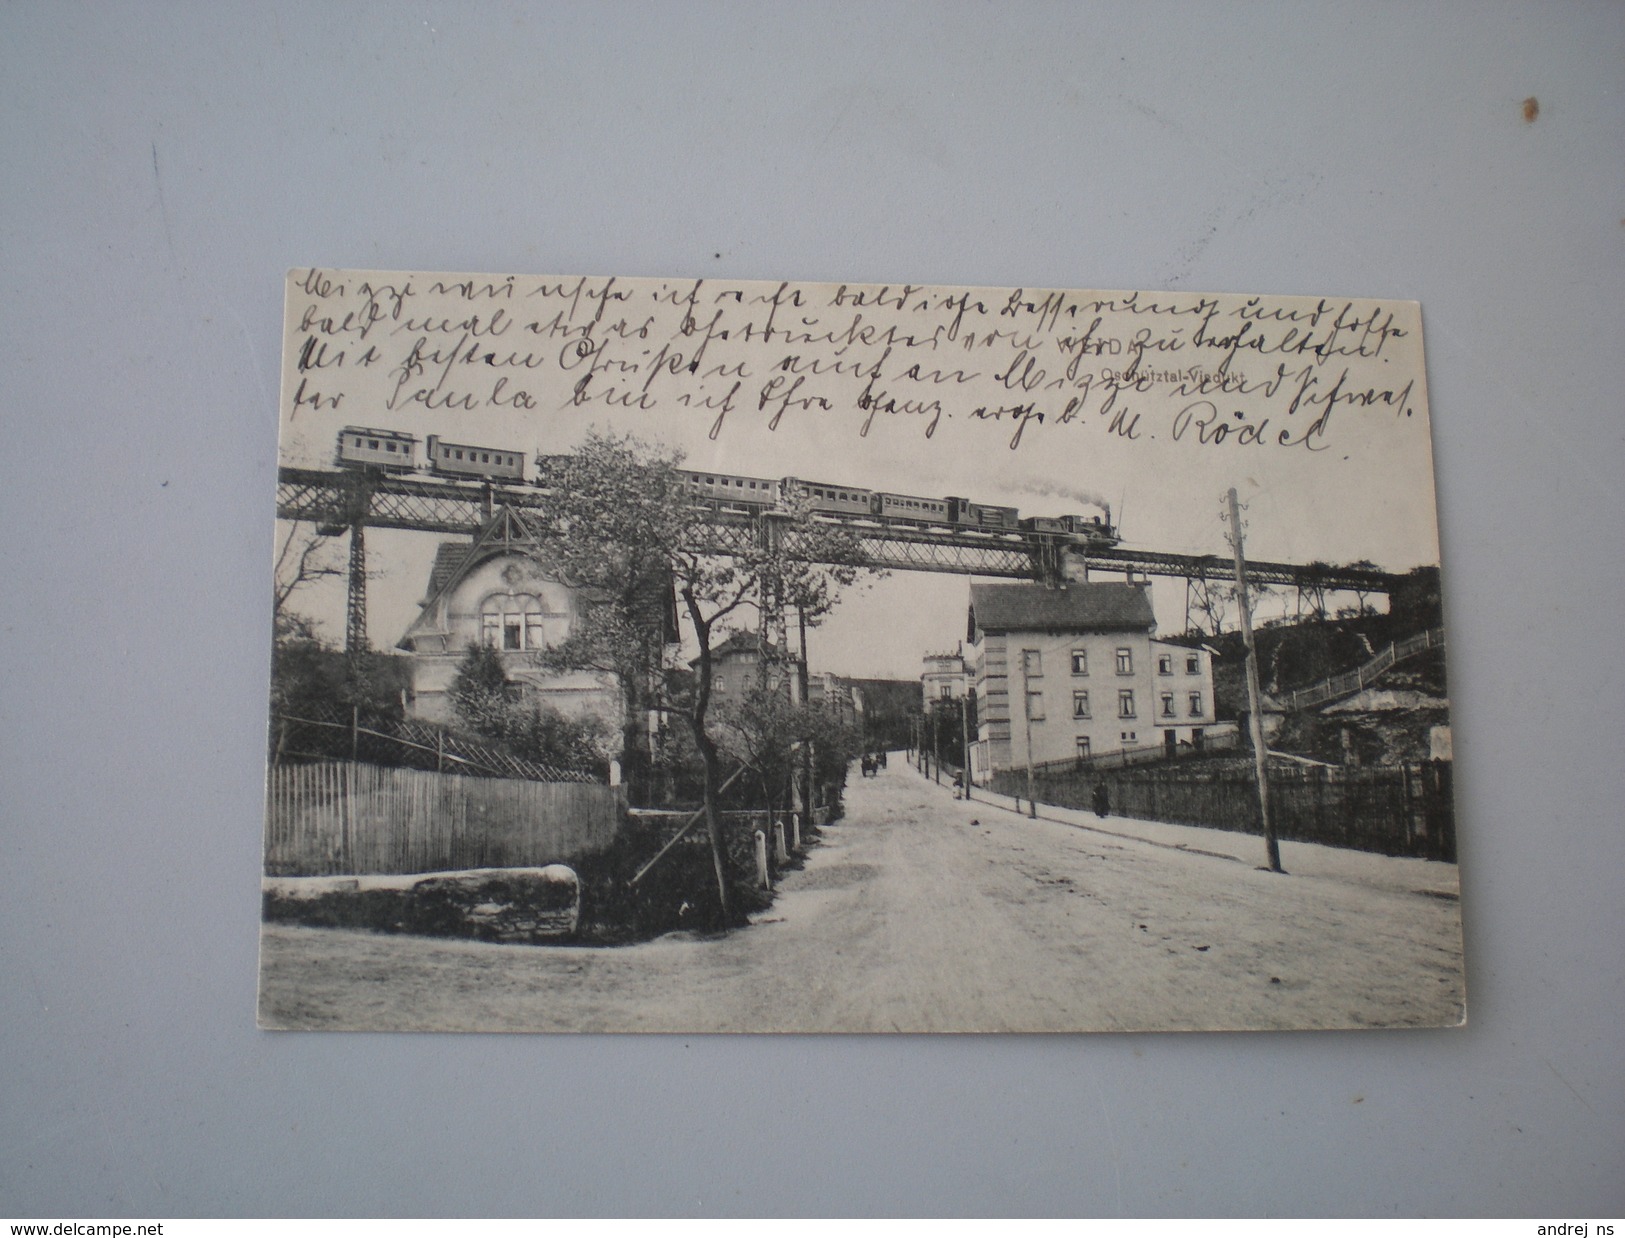 Mizzi wünsche ich recht baldige Besserung und hoffe
bald mal etwas Gedrucktes von ihr zu erhalten.
Mit besten Grüßen auch an Mizzi und Schwes-
ter Paula bin ich Ihre ganz. ergeb. M. Rödel
WEIDA
Oschütztal-Viadukt
www.delcampe.net
andrej ns